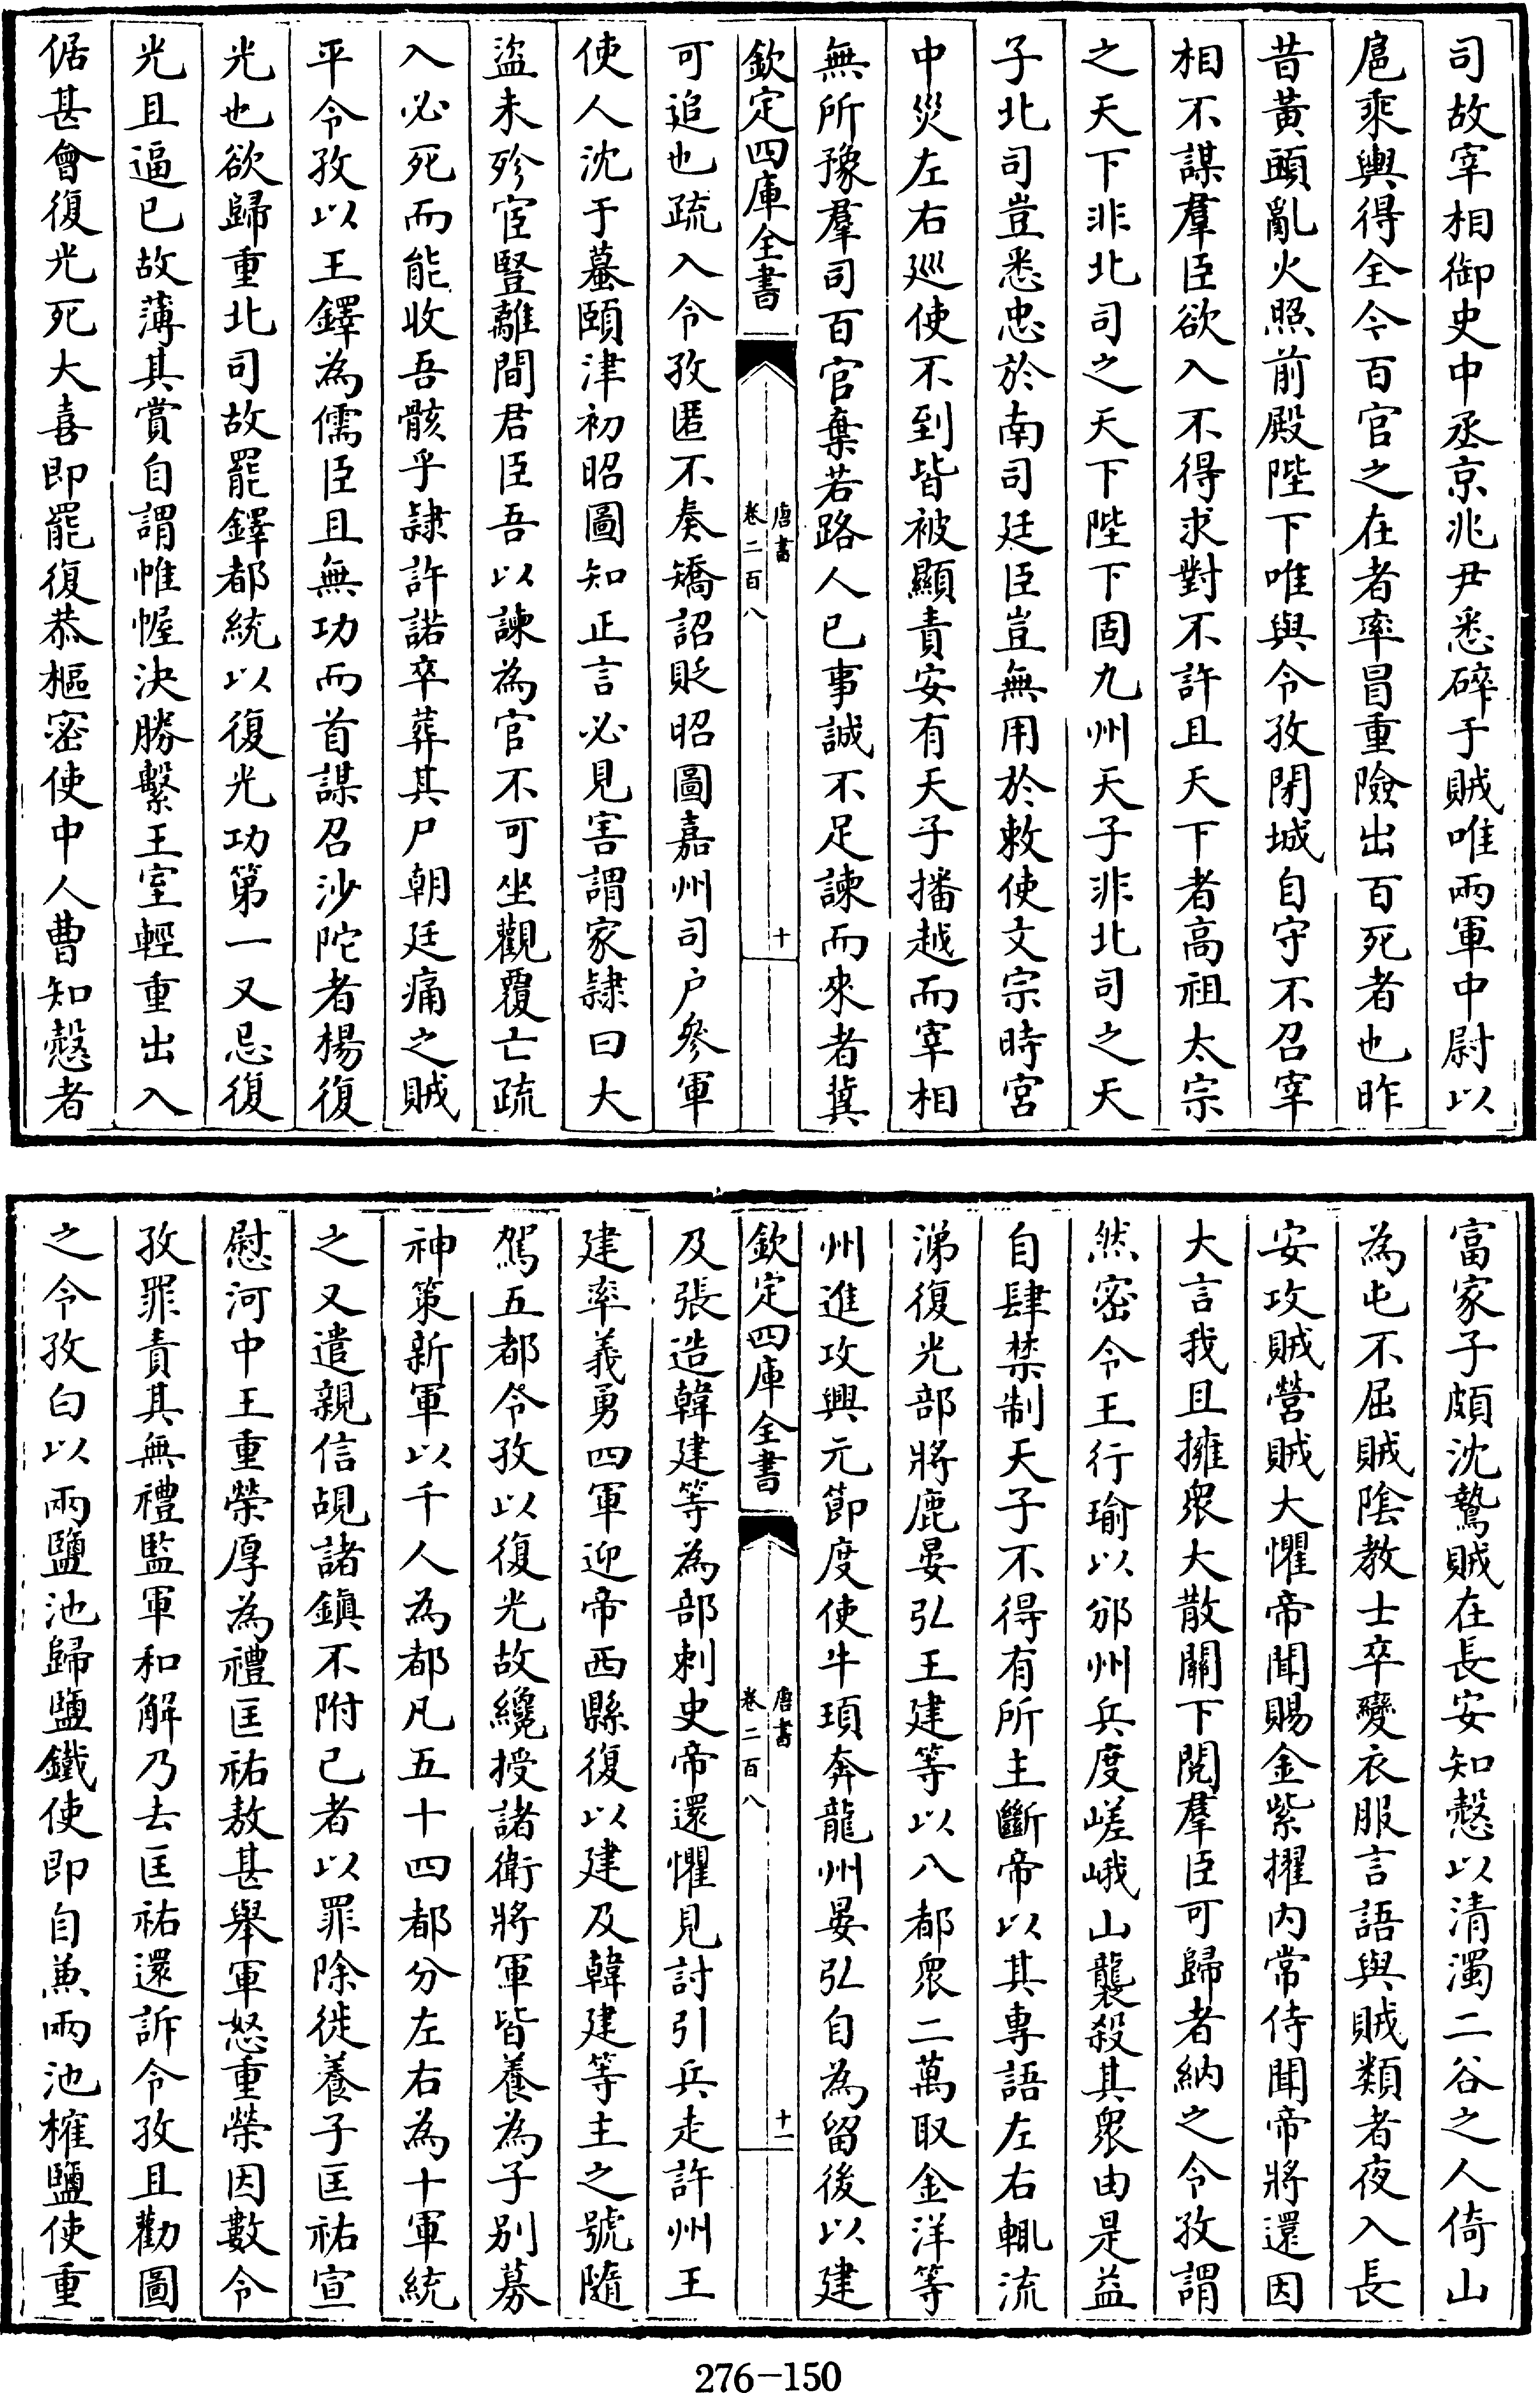 司故宰相御史中丞京兆尹悉碎于賊唯兩軍中尉以
扈乘輿得全今百官之在者率冒重險出百死者也昨
昔黃頭亂火照前殿陛下唯與令孜閉城自守不召宰
相不謀羣臣欲入不得求對不許且天下者高祖太宗
之天下非北司之天下陛下固九州天子非北司之天
子北司豈悉忠於南司廷臣豈無用於敕使文宗時宮
中災左右巡使不到皆被顯責安有天子播越而宰相
無所豫羣司百官棄若路人已事誠不足諫而來者冀
欽定四庫全書
唐書
卷二百八
十
可追也疏入令孜匿不奏矯詔貶昭圖嘉州司户參軍
使人沈于蟇頤津初昭圖知正言必見害謂家隷曰大
盜未殄宦豎離間君臣吾以諫為官不可坐觀覆亡疏
入必死而能收吾骸乎隷許諾卒葬其尸朝廷痛之賊
平令孜以王鐸為儒臣且無功而首謀召沙陀者楊復
光也欲歸重北司故罷鐸都統以復光功第一又忌復
光且逼已故薄其賞自謂帷幄決勝繫王室輕重出入
倨甚會復光死大喜即罷復恭樞密使中人曹知慤者
富家子頗沈鷙賊在長安知慤以清濁二谷之人倚山
為屯不屈賊陰教士卒變衣服言語與賊類者夜入長
安攻賊營賊大懼帝聞賜金紫擢內常侍聞帝將還因
大言我且擁衆大散關下閱羣臣可歸者納之令孜謂
然密令王行瑜以邠州兵度嵯峨山襲殺其衆由是益
自肆禁制天子不得有所主斷帝以其專語左右輒流
涕復光部將鹿晏弘王建等以八都衆二萬取金洋等
州進攻興元節度使牛頊奔龍州晏弘自為留後以建
欽定四庫全書
唐書
卷二百八
十一
及張造韓建等為部刺史帝還懼見討引兵走許州王
建率義勇四軍迎帝西縣復以建及韓建等主之號隨
駕五都令孜以復光故纔授諸衛將軍皆養為子别募
神策新軍以千人為都凡五十四都分左右為十軍統
之又遣親信覘諸鎮不附己者以罪除徙養子匡祐宣
慰河中王重榮厚為禮匡祐敖甚舉軍怒重榮因數令
孜罪責其無禮監軍和解乃去匡祐還訴令孜且勸圖
之令孜白以兩鹽池歸鹽鐵使即自兼兩池榷鹽使重
276-150